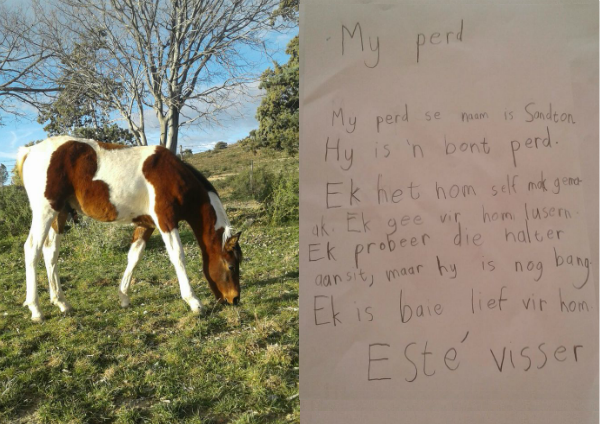 My perd
My perd se naam is Sandton
Hy is 'n bont perd.
Ek het hom self mak gema-
ak. Ek gee vir hom lusern.
Ek probeer die halter
aansit, maar hy is nog bang
Ek is baie lief vir hom
Esté visser